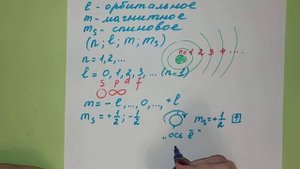 l - орбитальное
m - магнитное
ms - спиновое
(n; l; m; ms)
n = 1, 2, ...
n=1 2 3 4 ....
l = 0, 1, 2, 3, ... (n-1)
s p d f
m = - l, ..., 0, ..., + l
ms = + 1/2; - 1/2
ms = + 1/2 ↑
"ось ē"